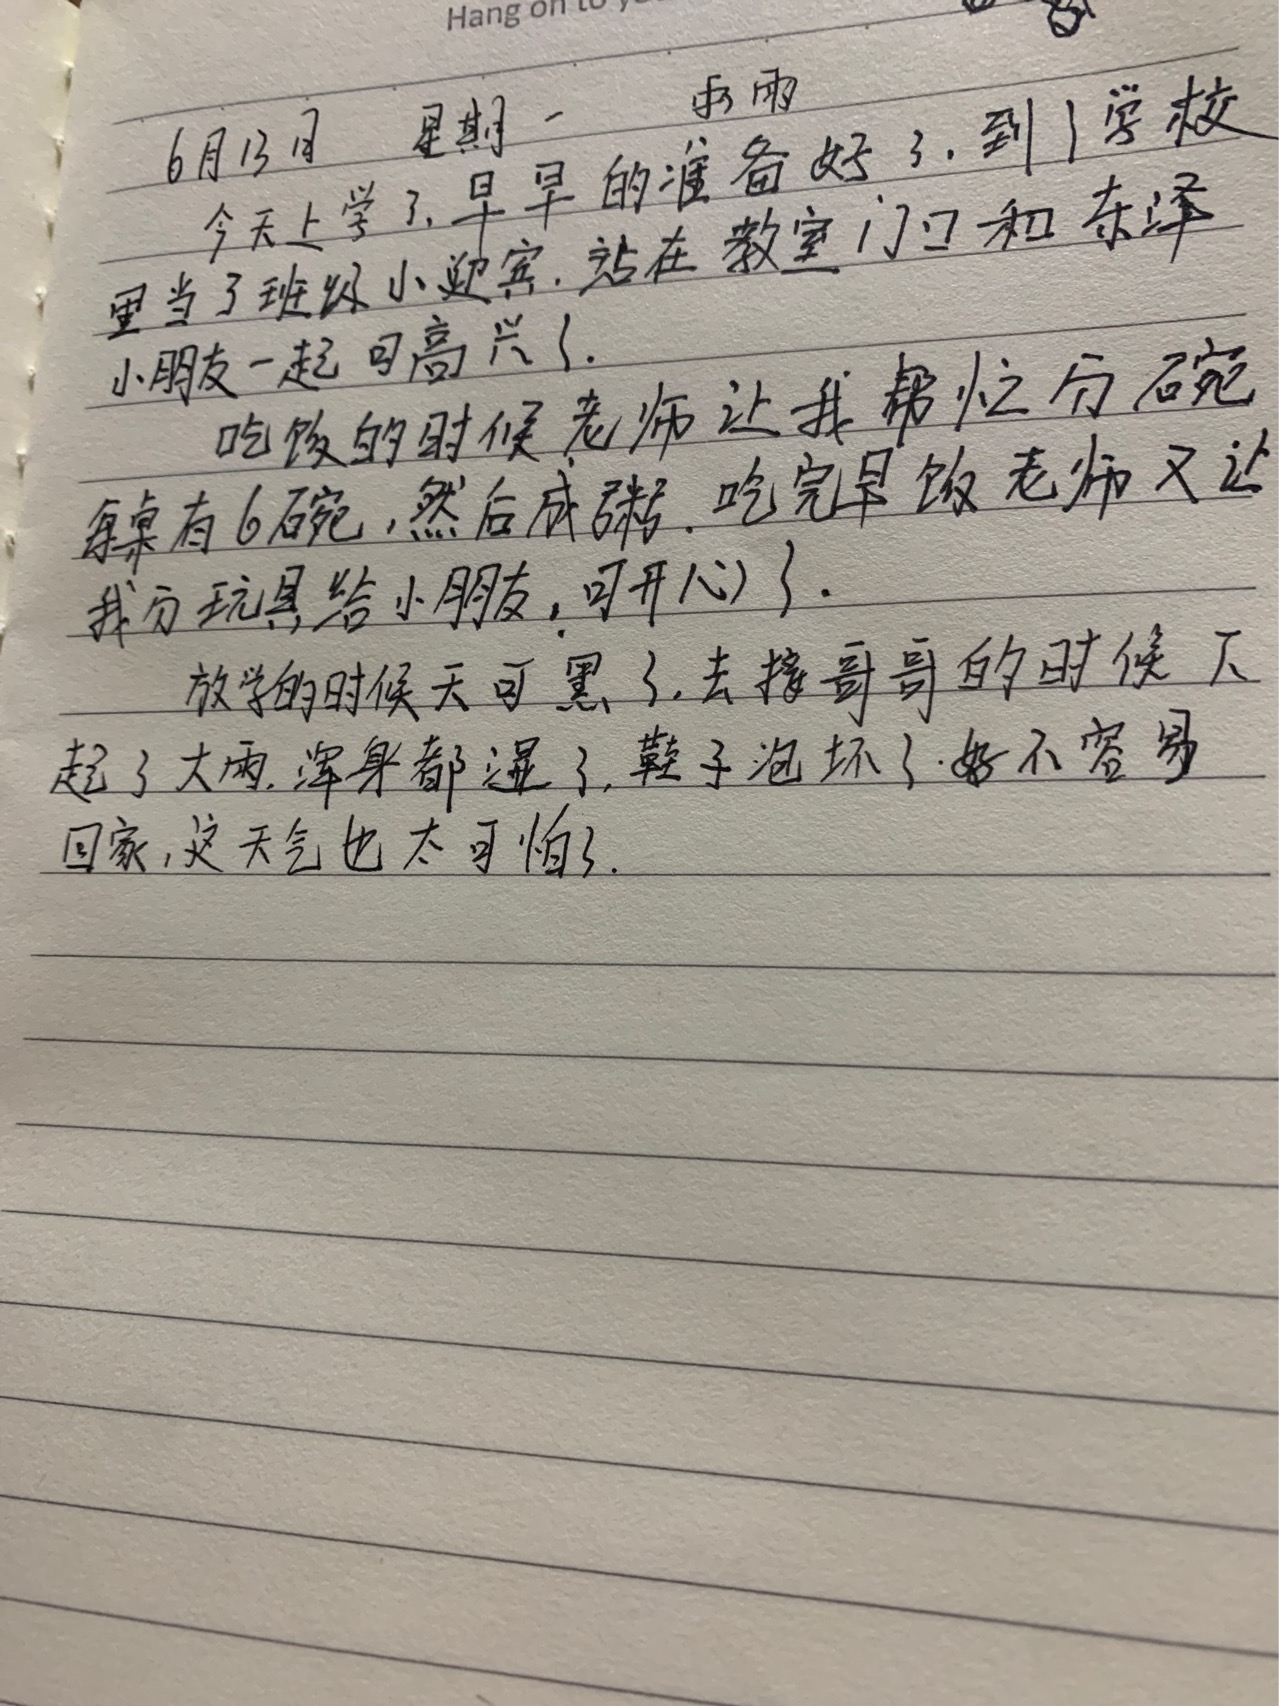 Hang on to
6月13日 星期一 雨
今天上学了,早早的准备好了.到了学校
里当了班级小迎宾.站在教室门口和东泽
小朋友一起可高兴了.
吃饭的时候老师让我帮忙分碗
每桌有6碗,然后成粥.吃完早饭老师又让
我分玩具给小朋友,可开心了.
放学的时候天可黑了.去接哥哥的时候下
起了大雨.浑身都湿了,鞋子泡坏了.好不容易
回家,这天气也太可怕了.